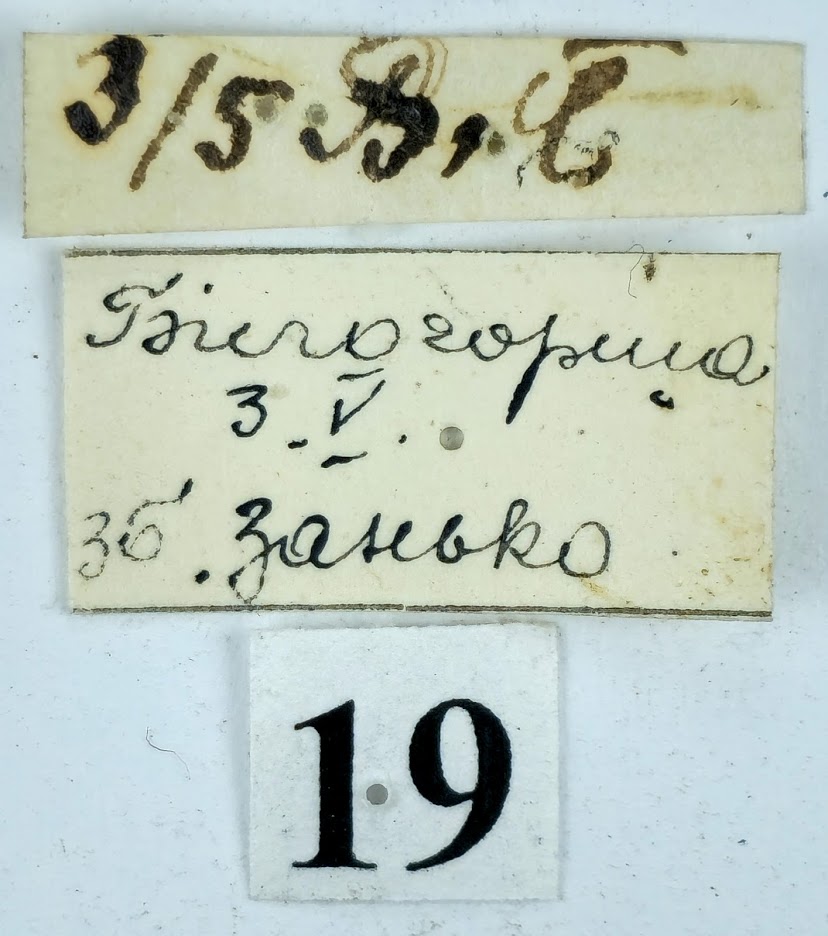 3/5 В, Б
Білогорица
3.V.
зб. Занько
19